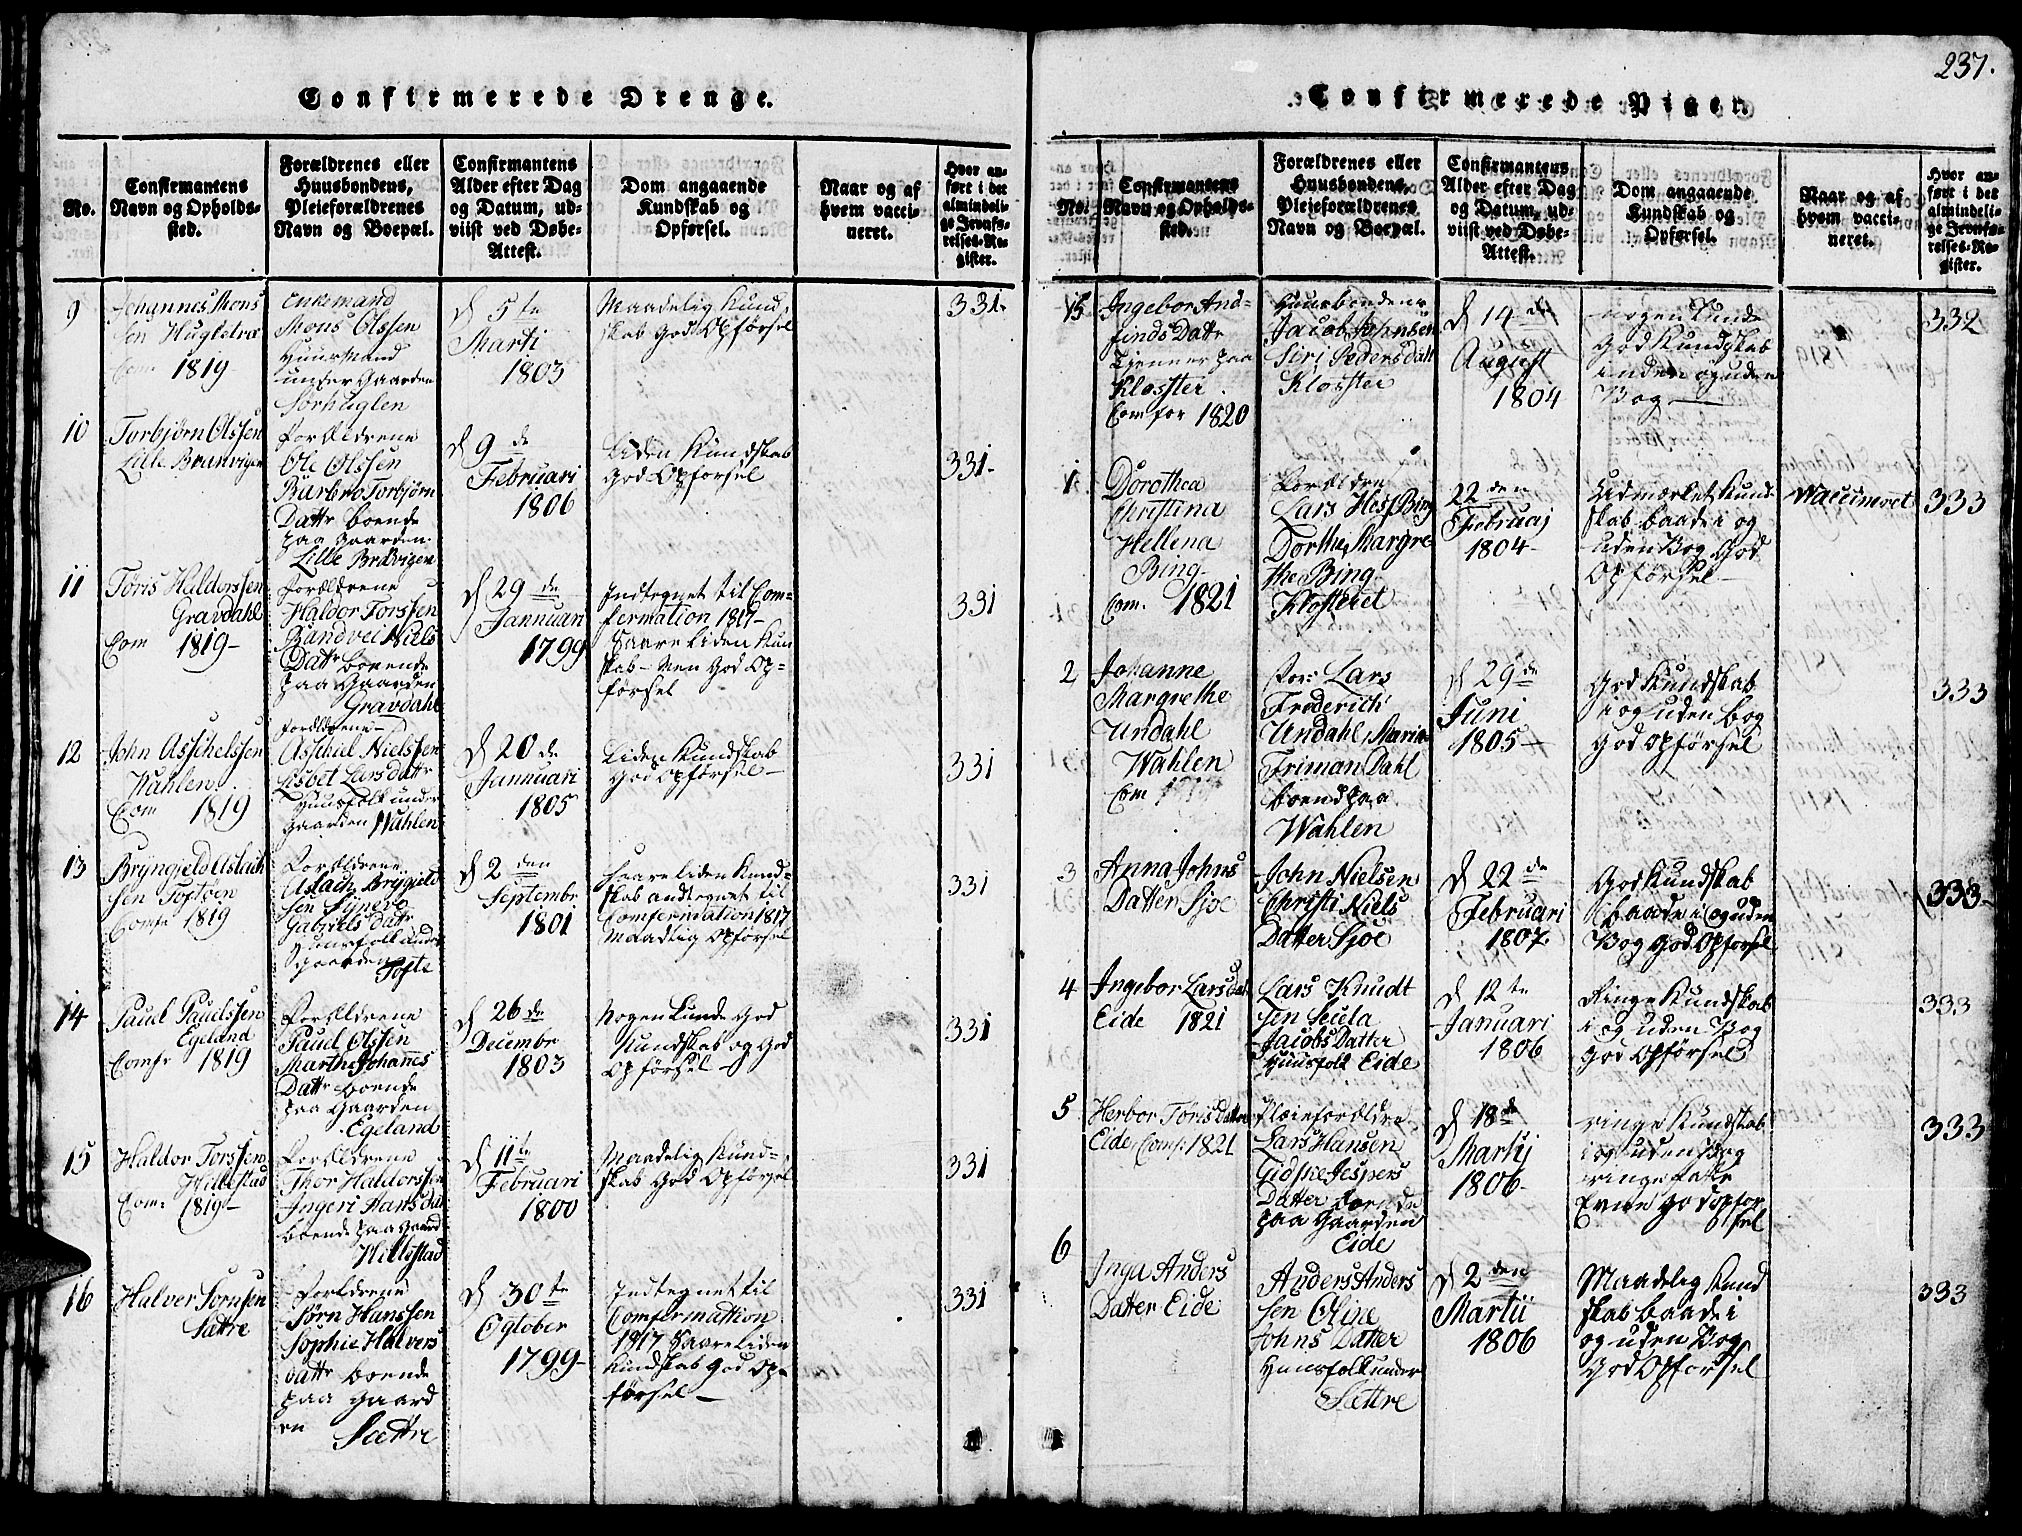 237.
Confirmerede Drenge.
No.
Confirmantens
Navn og Opholds-
sted.
Forældrenes eller
Huusbondens,
Pleieforældrenes
Navn og Boepæl.
Confirmantens
Alder efter Dag
og Datum, ud-
viist ved Døbe-
Attest.
Dom angaaende
Kundskab og
Opførsel.
Naar og af
hvem vacci-
neret.
Hvor an-
ført i det
almindeli-
ge Jevnfø-
relses-Re-
gister.
9
Johannes Mons
sen Hugletvæ
Com 1819
Enkemand
Mons Olssen
Huusmand
under Gaarden
Sørhuglen
d 5te
Marti
1803
Maadelig Kund,
skab Godt Opførsel
331.
10
Torbjørn Olssen
Lille Brunvigen
Forældrene
Ole Olssen
Barbro Torbjørn
Dattr boende
paa Gaarden
Lille Brdvigen
d 9de
Februari
1806
Liden Kundskab
God Opførsel
331.
11
Tøris Haldorssen
Gravdahl
Com 1819
Forældrene
Haldor Torssen
Randvei Niels
Dattr boende
paa Gaarden
Gravdahl
d 29de
Jannuari
1799
Indtegnet til Com-
fermation 1817
Saare liden Kun
skab - Men God Op-
førsel
331
12
John Asschelssen
Wahlen
Com 1819
Forældrene
Asschiel Nielssen
Lisbet Larsdattr
Huusfolk under
Gaarden Wahlen
d 20de
Jannuari
1805
Liden Kundskab
God Opførsel
331
13
Bryngield Aslach
sen Toftøen
Comfr 1819
Forældrene
Aslach Brÿgield
sen Synevo
Gabriels Dattr
Huusfolk under
Gaarden Tofte
d 2den
Septembr
1801
Saare liden Kund-
skab andtegnet til
Comfermation 1817
Maadlig Opførsel
331
14
Paul Paulssen
Egeland
Comfr 1819
Forældrene
Paul Olssen
Marthe Johanes
Dattr boende
paa Gaarden
Egeland
d 26de
Decembr
1803
Nogenlunde God
Kundskab og God
Opførsel
331
15
Haldor Torssen
Hillestad
Com: 1819
Forældrene
Thor Haldorssen
Ingeri Hansdat
boende paa Gaard
Hillestad
d 11te
Februari
1800
Maadelig Kund-
skab God Opførsel
331
16
Halver Sørnsen
Sættre
Forældrene
Sørn Hanssen
Sophie Halvers
dattr boende
paa Gaard
en Sættre
d 30te
Ogtober
1799
Indtegnet til
Comfermattion
1817 Saare liden
Kundskab God Op-
førsel
331
Confirmerede Piger.
No.
Confirmantens
Navn og Opholds-
sted.
Forældrenes eller
Huusbondens,
Pleieforældrenes
Navn og Boepæl.
Confirmantens
Alder efter Dag
og Datum, ud-
viist ved Døbe-
Attest.
Dom angaaende
Kundskab og
Opførsel.
Naar og af
hvem vacci-
neret.
Hvor an-
ført i det
almindeli-
ge Jevnfø-
relses-Re-
gister.
15
Ingebor And
finds Dattr
Tjenner paa
Klosster
Comfor 1820
Huusbondene
Jacob Johnsen
Siri Pedersdatt
Klosster
d 14de
August
1804
nogen lunde
God Kundskab
inden og uden
Bog
332
1
Dorothea
Christina
Hellena
Bing
Com. 1821
Forældre
Lars Hess Bing
Dorthe Margre
the Bing
Klosteret
22den
Februaj
1804
Udmærket Kund
skab baade i og
uden Bog God
Opførsel
Waccineret
333
2
Johanne
Margrethe
Undahl
Wahlen
Com
For: Lars
Frederich
Undahl, Maria
Friman Dahl
boend paa
Wahlen
d 29de
Juni
1805
God Kundskab
i og uden bog
God Opførsel
333
3
Anna Johns
Datter Sjoe
John Nielsen
Christi Niels
Datter Sjoe
d 22de
Februari
1807.
God Kundskab
baade i og uden
Bog God Opførsel
333
4
Ingebor Larsdat
Eide 1821
Lars Knudt
sen Seiela
Jacobs Datter
Huusfolk Eide
d 12te
Januari
1806
Ringe Kundskab
i og uden Bog
God Opførsel
333
5
Herbor Tørisdatter
Eide, Comf: 1821
Pleieforældre
Lars Hansen
Gidske Jespers
Datter boende
paa Gaarden
Eide
d 18de
Martij
1806
ringe Kundskab
i og uden Bog
ringe fatte
Evne god opfør
sel
333
6
Inga Anders
Datter Eide
Anders Anders
sen Oline
Johns Datter
Huusfolk under
Sættre
d 2den
Martii
1806
Maadelig Kund
skab baade i
og uden Bog
God Opførsel
333